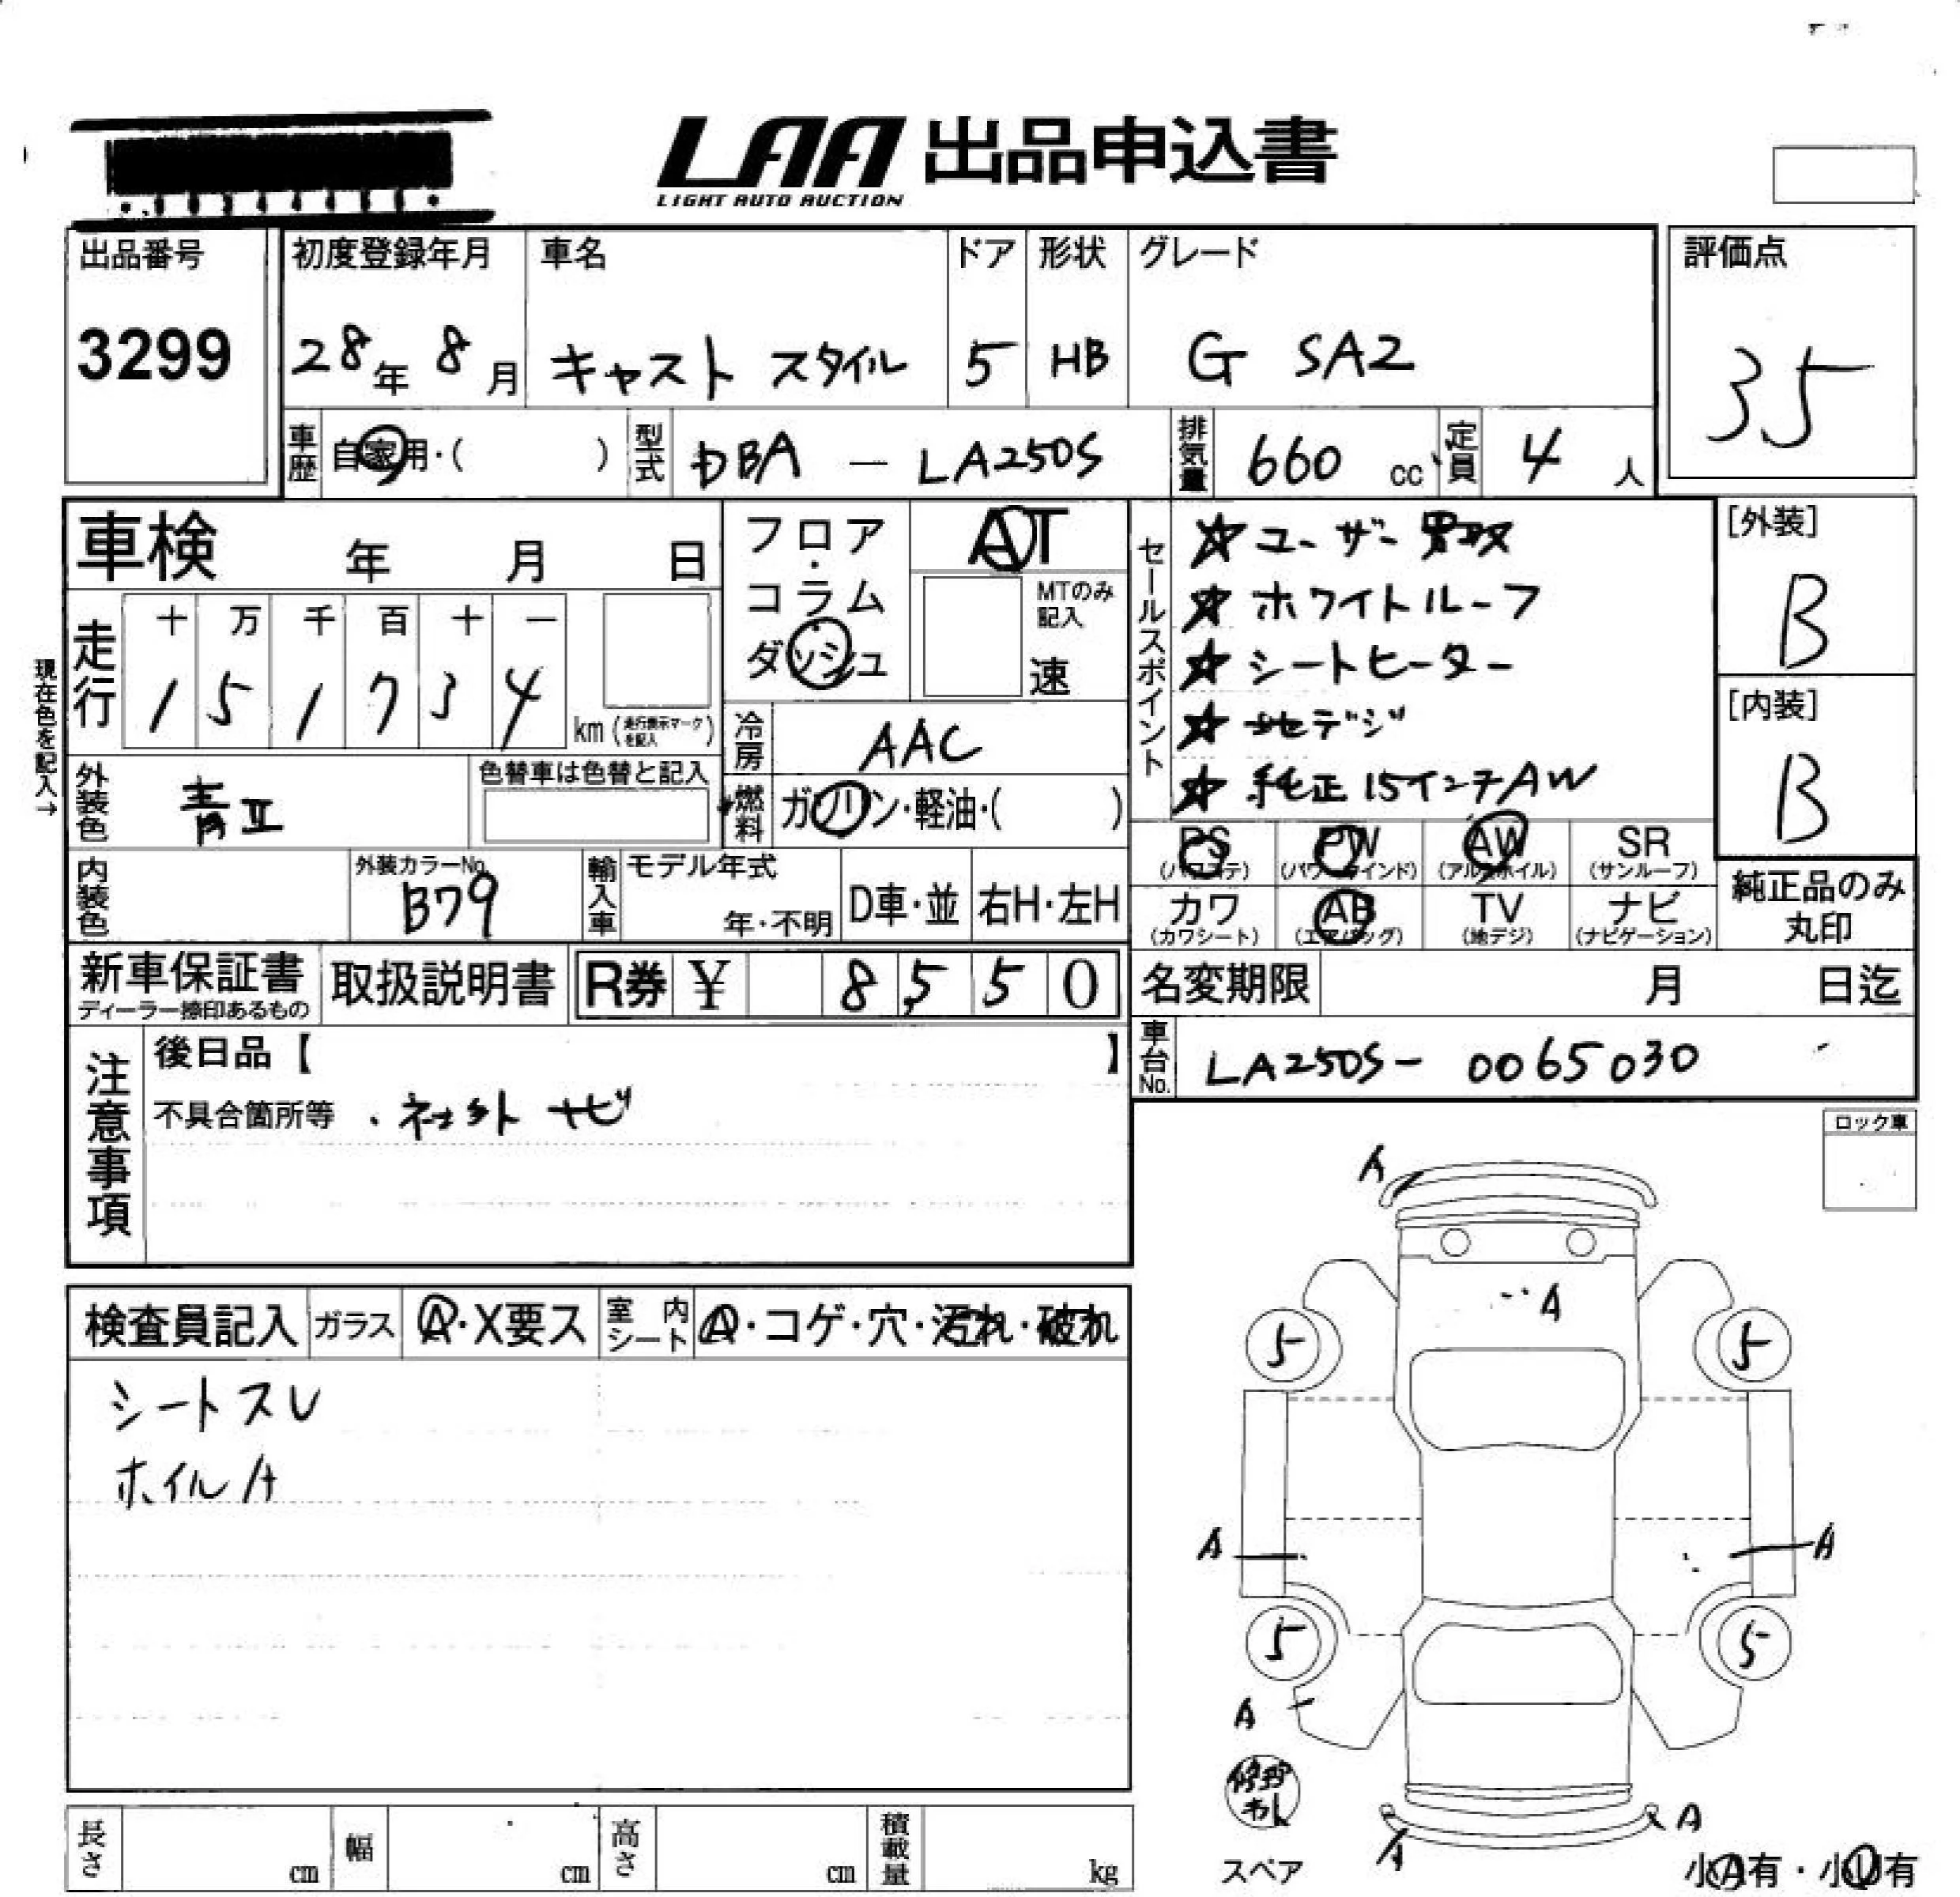 LAA 出品申込書
LIGHT AUTO AUCTION
出品番号 初度登録年月 車名 ドア 形状 グレード 評価点
3299 28年 8月 キャスト スタイル 5 HB G SA2 35
車歴 自家用・( ) 型式 DBA — LA250S 排気量 660 cc 定員 4 人
車検 年 月 日
フロア・コラム
ダッシュ
AT
MTのみ記入
速
セールスポイント
☆ ユーザー買取
☆ ホワイトルーフ
☆ シートヒーター
☆ 地デジ
☆ 純正15インチAW
[外装]
B
[内装]
B
現在色を記入→
走行 十 万 千 百 十 一
1 5 1 7 3 4 km (走行表示マークを記入)
冷房 AAC
外装色 青II 色替車は色替と記入
燃料 ガソリン・軽油・( )
PS PW AW SR
(パワステ) (パワーウインド) (アルミホイル) (サンルーフ)
カワ AB TV ナビ
(カワシート) (エアバッグ) (地デジ) (ナビゲーション)
純正品のみ
丸印
内装色 外装カラーNo. B79 輸入車 モデル年式 年・不明 D車・並 右H・左H
新車保証書 取扱説明書 R券 ¥ 8 5 5 0
ディーラー捺印あるもの
名変期限 月 日迄
車台No. LA250S- 0065030
注意事項
後日品【 】
不具合箇所等 ・ネット ナビ
ロック車
検査員記入 ガラス A・X要ス 室内シート A・コゲ・穴・汚れ・破れ
シートスレ
ホイルA
A
A
5 5
A A
5 5
A
A A
スペア
小A有・小U有
長さ cm 幅 cm 高さ cm 積載量 kg